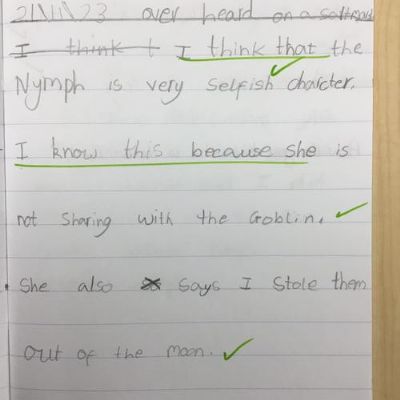 21\11\23 over heard on a saltmarsh
I think t I think that the
Nymph is very selfish charcter.
I know this because she is
not sharing with the Goblin.
She also says I stole them
out of the moon.